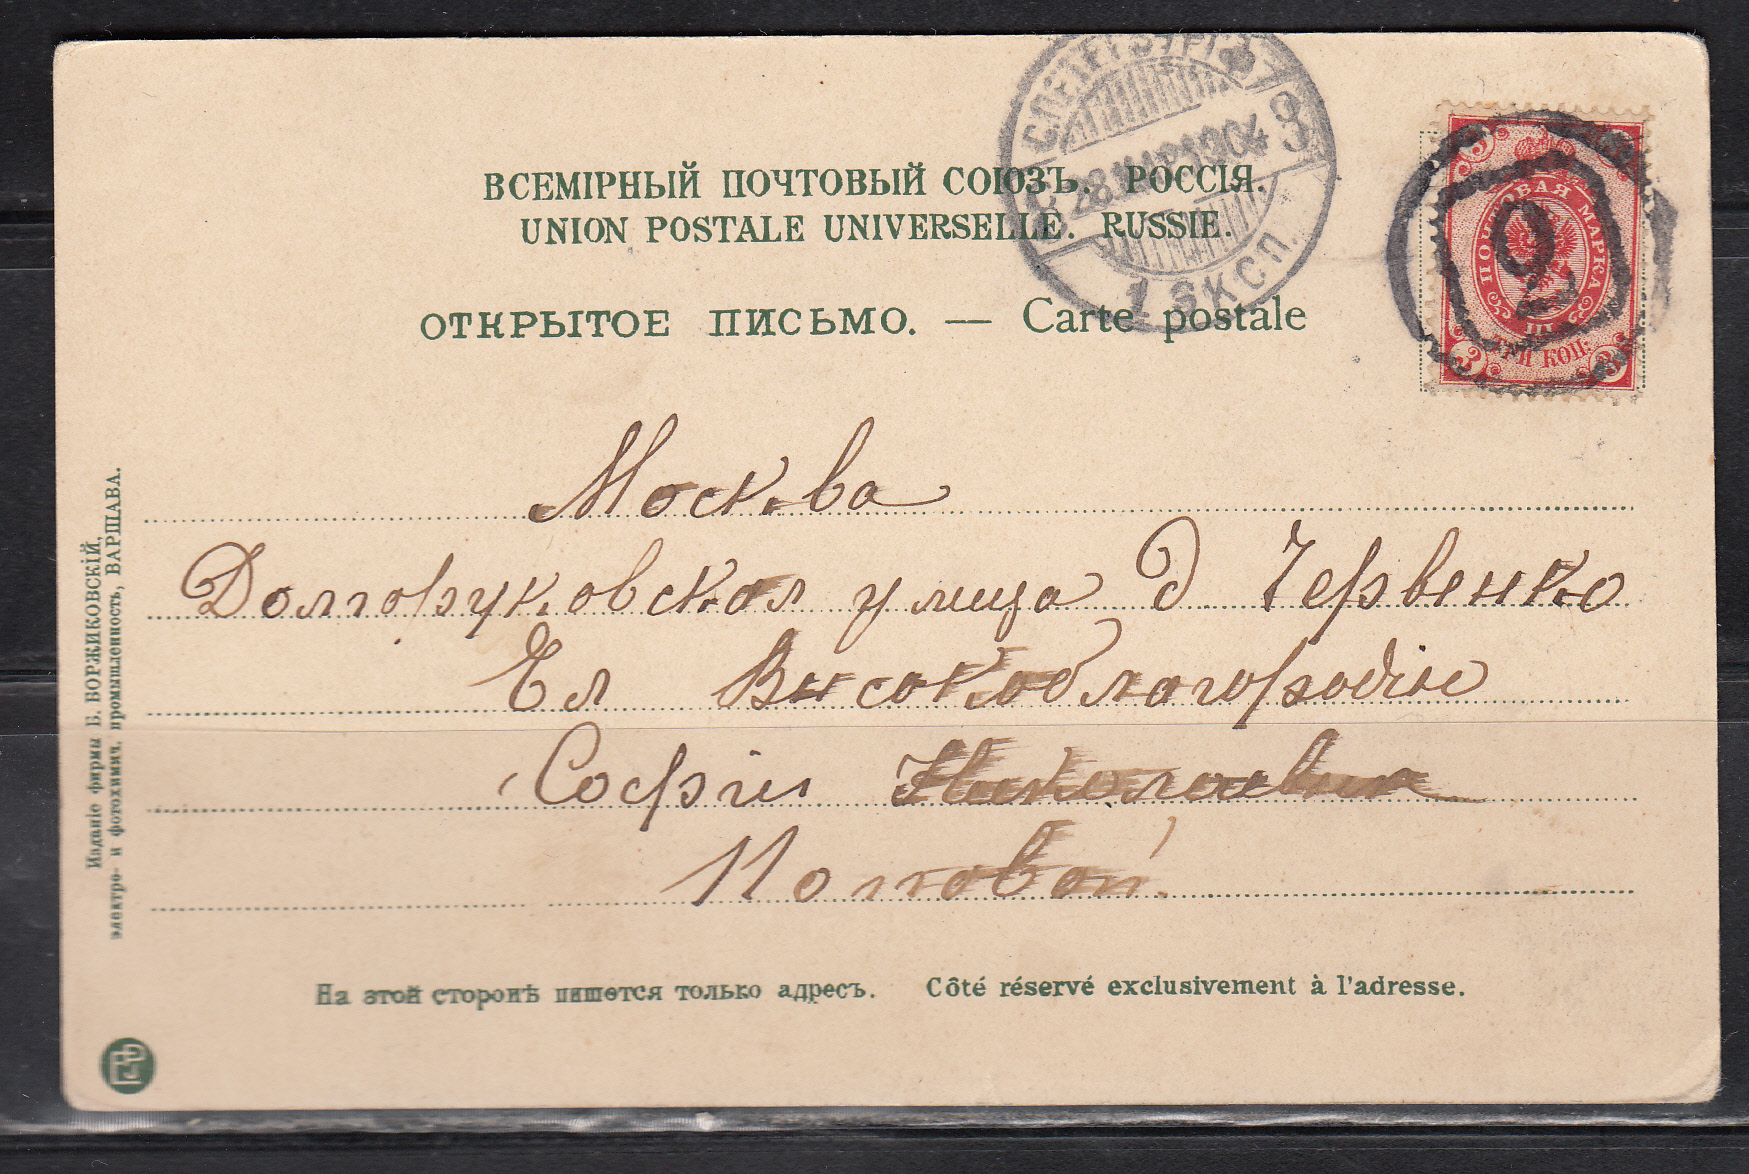 ВСЕМІРНЫЙ ПОЧТОВЫЙ СОЮЗЪ. РОССІЯ.
UNION POSTALE UNIVERSELLE. RUSSIE.
ОТКРЫТОЕ ПИСЬМО. — Carte postale
С.ПЕТЕРБУРГЪ
28 МАР 1904
1 ЭКСП.
ПОЧТОВАЯ МАРКА
3
ТРИ КОП.
3
2
Москва
Долгоруковская улица д Червенко
Ея Высокоблагородію
Софіи Николаевнѣ
Поповой.
На этой сторонѣ пишется только адресъ. Côté réservé exclusivement à l'adresse.
Изданіе фирмы Б. ВОРЖИКОВСКІЙ,
электро- и фотохимич. промышленность, ВАРШАВА.